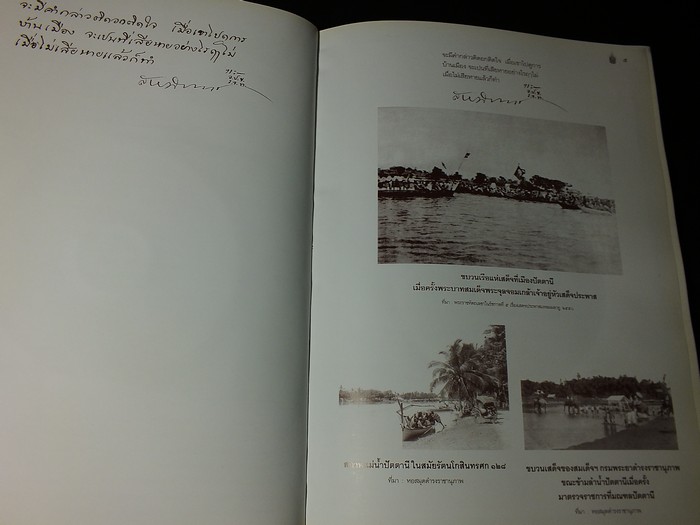 จะมีคำกล่าวติดอกติดใจ เมื่อเขาไปดูการ
บ้านเมือง จะเปนที่เสียหายอย่างไรฤๅไม่
เมื่อไม่เสียหายแล้วก็ทำ
จะมีคำกล่าวติดอกติดใจ เมื่อเขาไปดูการ
บ้านเมือง จะเปนที่เสียหายอย่างไรฤๅไม่
เมื่อไม่เสียหายแล้วก็ทำ
ขบวนเรือแห่เสด็จที่เมืองปัตตานี
เมื่อครั้งพระบาทสมเด็จพระจุลจอมเกล้าเจ้าอยู่หัวเสด็จประพาส
แม่น้ำปัตตานี ในสมัยรัตนโกสินทรศก ๑๒๘
ที่มา : หอสมุดดำรงราชานุภาพ
ขบวนเสด็จของสมเด็จฯ กรมพระยาดำรงราชานุภาพ
ขณะข้ามลำน้ำปัตตานีเมื่อครั้ง
มาตรวจราชการที่มณฑลปัตตานี
ที่มา : หอสมุดดำรงราชานุภาพ